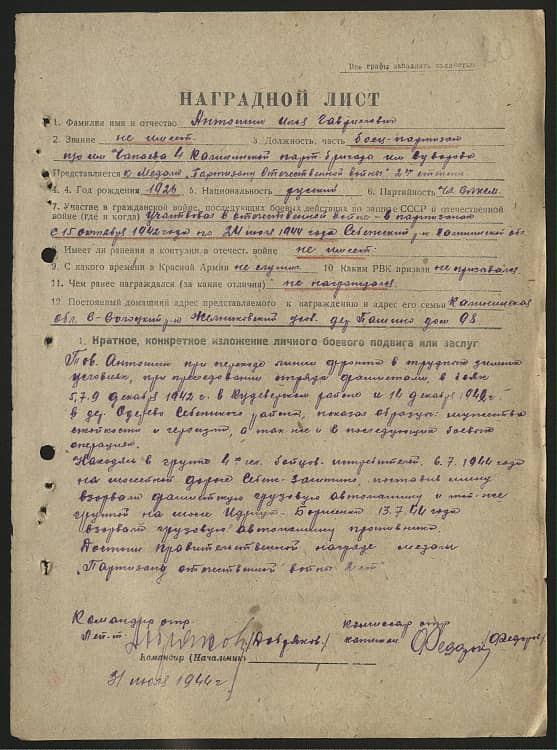 Все графы заполнять полностью
НАГРАДНОЙ ЛИСТ
1. Фамилия имя и отчество Антошин Илья Гаврилович
2. Звание не имеет. 3. Должность, часть боец-партизан
им Чапаева 4 Калининской парт бригады им Суворова
Представляется к Медали „Партизану Отечественной войны" 2й степени
4. Год рождения 1926 5. Национальность русский 6. Партийность чл. влксм.
7. Участие в гражданской войне, последующих боевых действиях по защите СССР и отечественной
войне (где и когда) Участвовал в отечественной войне - в партизанах
с 15 октября 1942 года по 24 июля 1944 года Себежский р-н Калининской обл.
8. Имеет ли ранения и контузии в отечест. войне не имеет.
9. С какого времени в Красной Армии не служил 10 Каким РВК призван не призывался.
11. Чем ранее награждался (за какие отличия) не награждался
12 Постоянный домашний адрес представляемого к награждению и адрес его семьи Калининская
обл. р-н дер. Пашино дом 98.
1. Краткое, конкретное изложение личного боевого подвига или заслуг
Тов. Антошин при переходе линии фронта в трудных зимних
условиях, при преследовании отряда фашистами, в боях
5,7.9 декабря 1942 г. в Кудеверском районе и 14 декабря 1942 г.
в дер. Себежского района, показал образцы мужества
стойкости и героизма, а так же и в последующих боевых
операциях.
Находясь в группе 4-х чел. бойцов. 6.7.1944 года
на шоссейной дороге Себеж-Заситино, поставив мину
взорвали фашистскую грузовую автомашину и той-же
группой на шоссе Идрица - 13.7.44 года
взорвали грузовую автомашину противника.
Достоин правительственной награды медали
„Партизану отечественной войны 2 ст"
Командир отр. комиссар отр
Лет-т капитан (Федоров)
Командир (Начальник)
31 июля 1944 г.